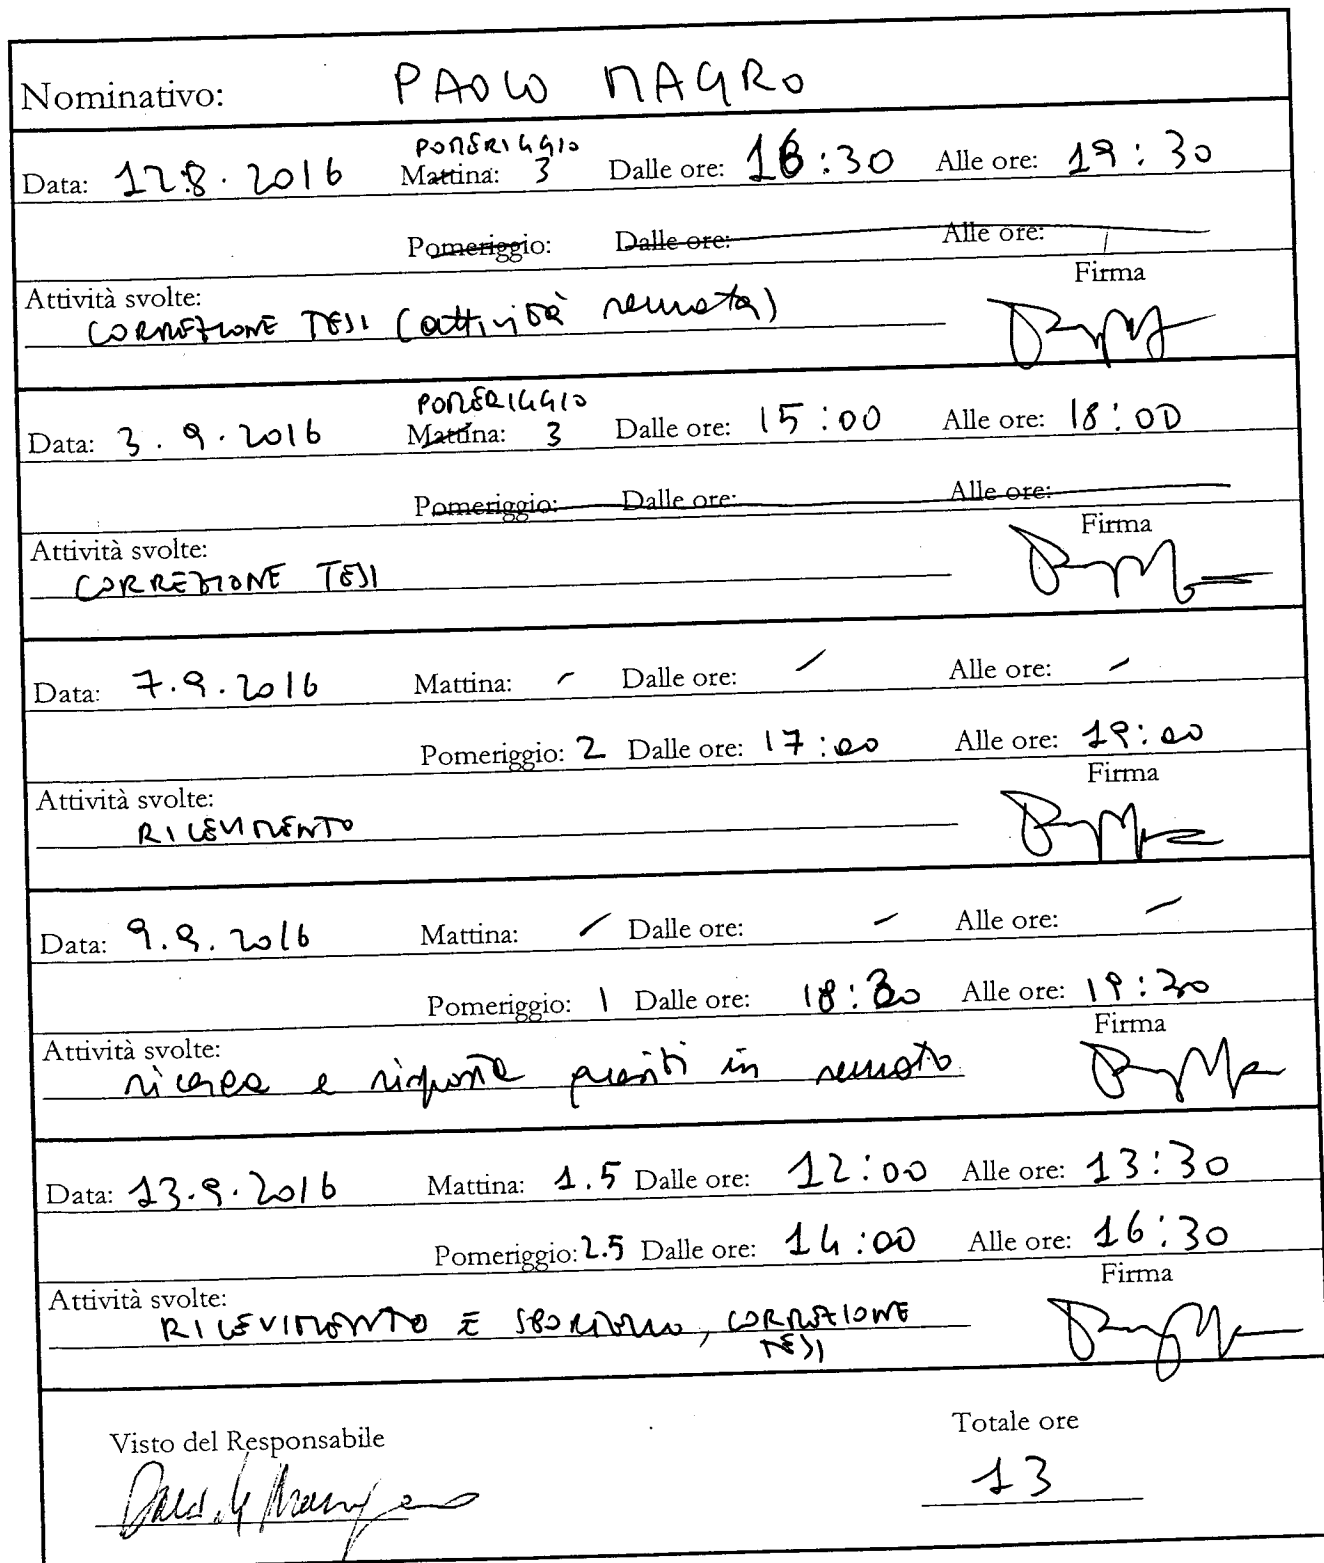 Nominativo: PAOLO MAGRO
POMERIGGIO
Data: 12.8.2016 Mattina: 3 Dalle ore: 16:30 Alle ore: 19:30
Pomeriggio: Dalle ore: Alle ore:
Firma
Attività svolte:
CORREZIONE TESI (attività remota)
POMERIGGIO
Data: 3.9.2016 Mattina: 3 Dalle ore: 15:00 Alle ore: 18:00
Pomeriggio: Dalle ore: Alle ore:
Firma
Attività svolte:
CORREZIONE TESI
Data: 7.9.2016 Mattina: - Dalle ore: - Alle ore: -
Pomeriggio: 2 Dalle ore: 17:00 Alle ore: 19:00
Firma
Attività svolte:
RICEVIMENTO
Data: 9.9.2016 Mattina: - Dalle ore: - Alle ore: -
Pomeriggio: 1 Dalle ore: 18:30 Alle ore: 19:30
Firma
Attività svolte:
ricerca e risposta quesiti in remoto
Data: 13.9.2016 Mattina: 1.5 Dalle ore: 12:00 Alle ore: 13:30
Pomeriggio: 2.5 Dalle ore: 14:00 Alle ore: 16:30
Firma
Attività svolte:
RICEVIMENTO E SPORTELLO, CORREZIONE
TESI
Visto del Responsabile
Totale ore
13